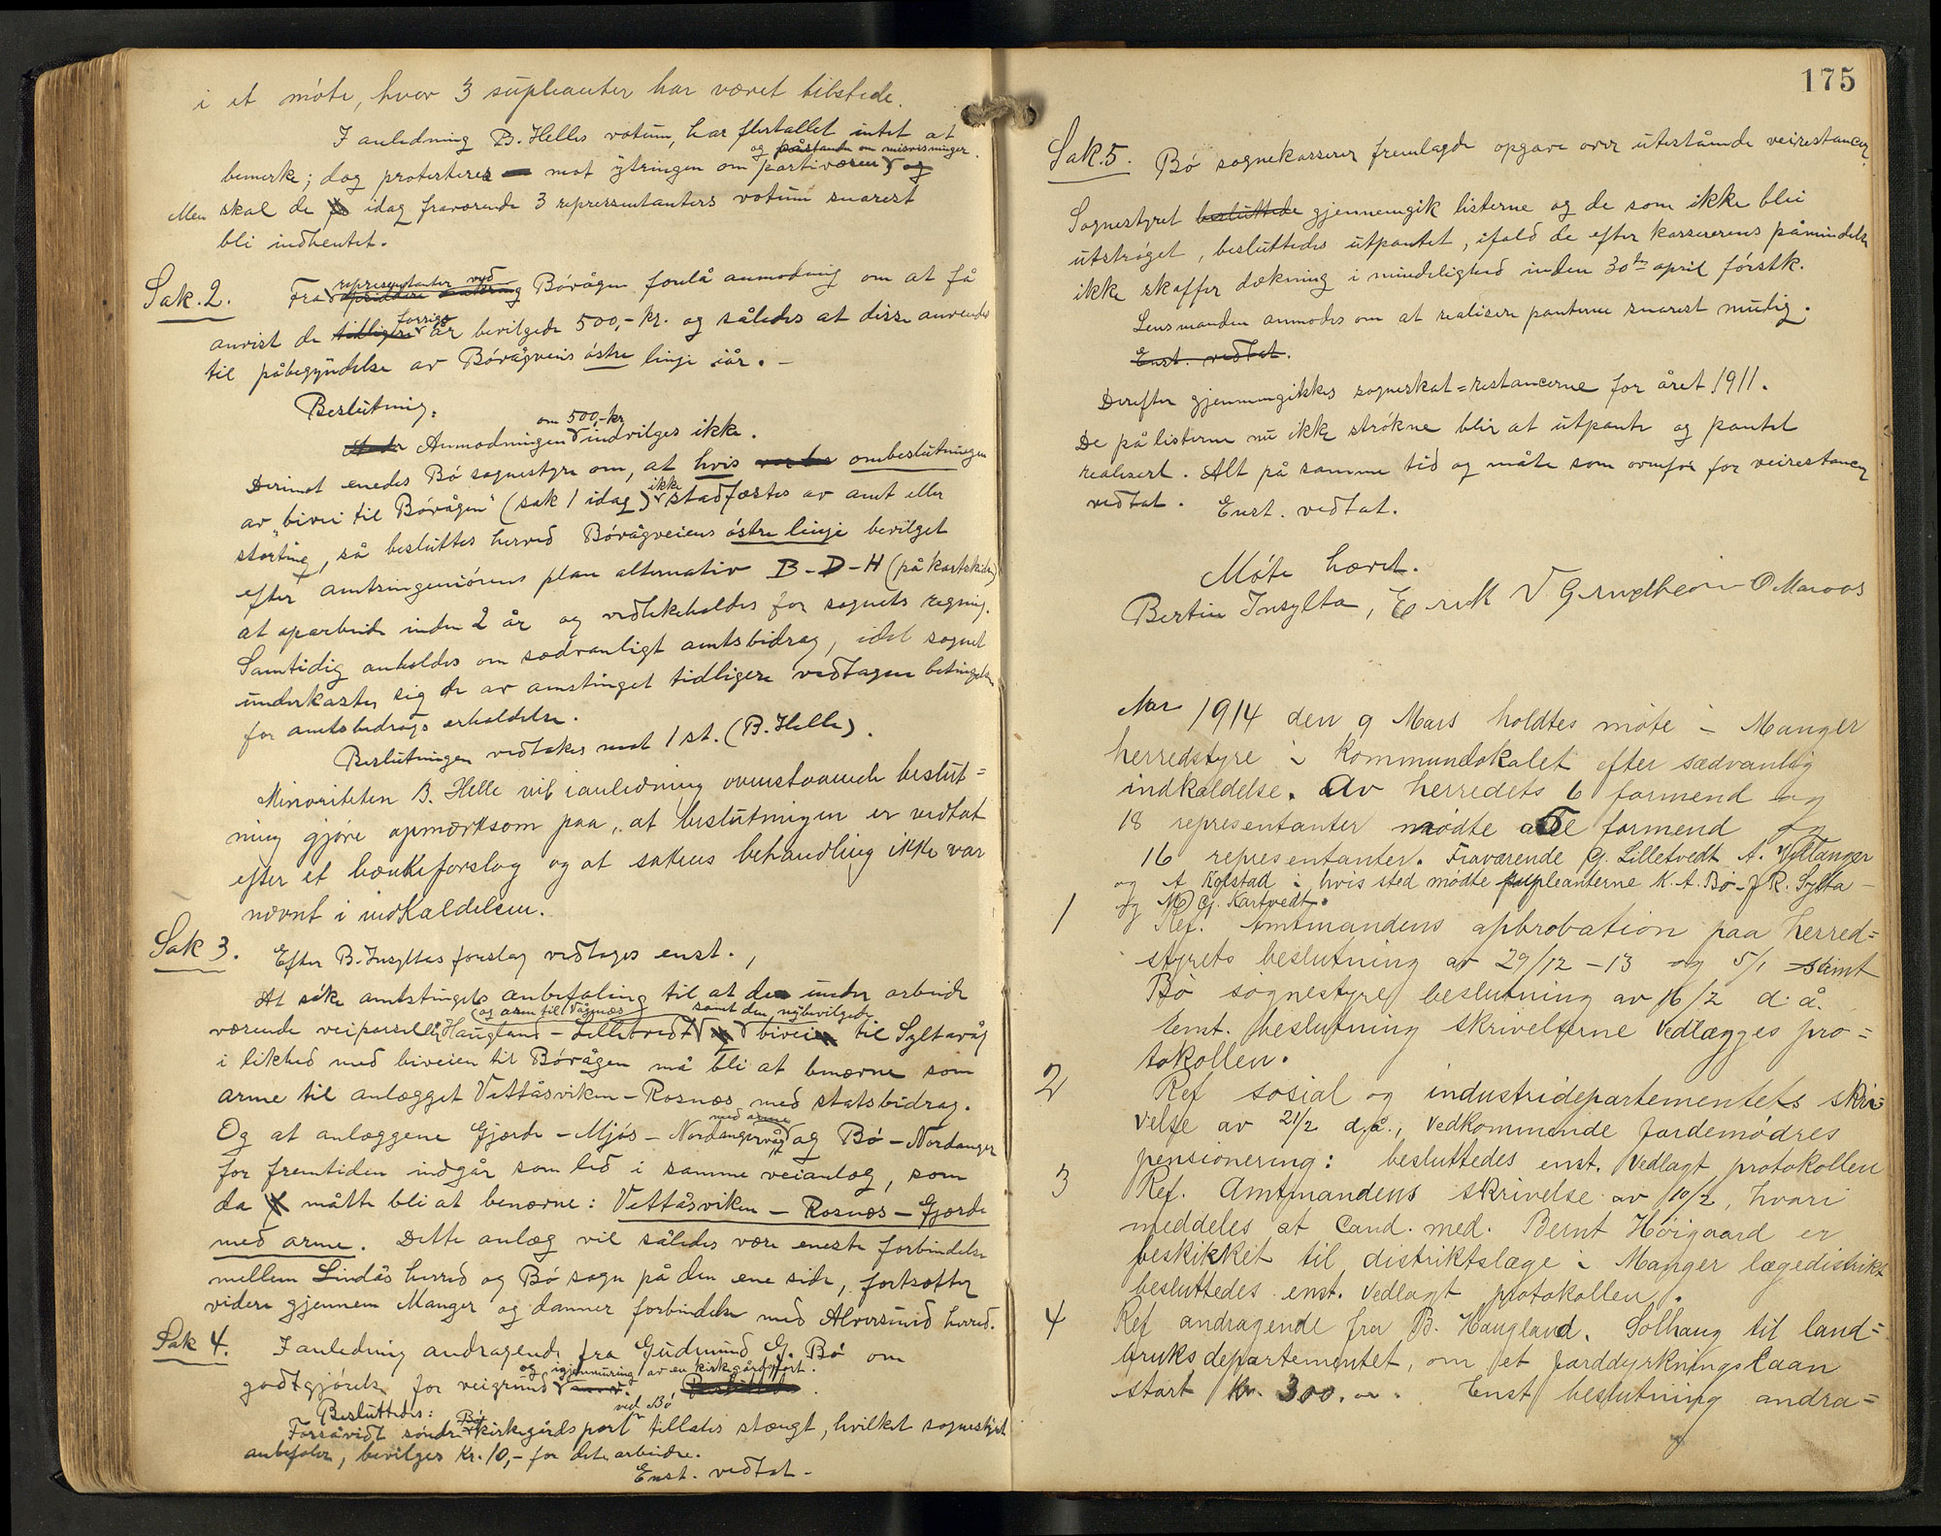 i et møte, hvor 3 supleanter har været tilstede.
I anledning B. Helles votum, har flertallet intet at
og påstanden om misvisninger.
bemerke; dog protesteres mot ytringen om partivæsen og
Men skal de idag fraværende 3 representanters votum snarest
bli indhentet.
Sak. 2.
representanter ved
Fra Bøvågen forelå anmodning om at få
forrige
anvist de tidligere år bevilgede 500,- kr. og således at disse anvendes
til påbegyndelse av Bøvågveiens østre linje iår. -
Beslutning:
om 500,- kr
Anmodningen indvilges ikke.
Derimot enedes Bø sognestyre om, at hvis ombeslutningen
ikke
av "bivei til Bøvågen" (sak 1 idag) stadfæstes av amt eller
storting, så besluttes herved Bøvågveiens østre linje bevilget
efter amtsingeniørens plan alternativ B-D-H (på kartskissen)
at oparbeide inden 2 år og vedlikeholdes for sognets regning.
Samtidig anholdes om sædvanligt amtsbidrag, idet sognet
underkaster sig de av amtstinget tidligere vedtagne betingelser
for amtsbidrags erholdelse.
Beslutningen vedtokes mot 1 st. (B. Helle).
Minoriteten B. Helle vil i anledning ovenstaaende beslut=
ning gjøre opmerksom paa, at beslutningen er vedtat
efter et bænkeforslag og at sakens behandling ikke var
nævnt i indkaldelsen.
Sak 3.
Efter B. Insyltas forslag vedtages enst.,
At søke amtstingets anbefaling til at de under arbeide
og arm til Vågnes samt den nybevilgede
værende veiparseller Haugland - Lilletvedt bivei til Syltavåg
i likhed med biveien til Bøvågen må bli at benævne som
arme til anlægget Vettåsviken - Rosnæs med statsbidrag.
med arme
Og at anlæggene Gjærde - Mjøs - Nordangervåg og Bø - Nordanger
for fremtiden indgår som led i samme veianlæg, som
da måtte bli at benævne: Vettåsviken - Rosnæs - Gjærde
med arme. Dette anlæg vil således være eneste forbindelse
mellem Lindås herred og Bø sogn på den ene side, fortsætter
videre gjennem Manger og danner forbindelse med Alversund herred.
Sak 4.
I anledning andragende fra Gudmund G. Bø om
og igjenmuring av en kirkegårdsport.
godtgjørelse for veigrund
Besluttedes: ved Bø
Forsåvidt søndre kirkegårdsport tillates stængt, hvilket sognestyret
anbefaler, bevilges kr. 10,- for dette arbeide.
Enst. vedtat -
175
Sak. 5. Bø sognekasserer fremlagde opgave over utestående veirestancer
Sognestyret besluttede gjennemgik listerne og de som ikke blei
utstrøget, besluttedes utpantet, ifald de efter kassererens påmindelse
ikke skaffer dækning i mindelighed inden 30te april førstk.
Lensmanden anmodes om at realisere panterne snarest mulig.
Enst. vedtat.
Derefter gjennemgikkes sogneskat=restancerne for året 1911.
De på listerne nu ikke strøkne blir at utpante og pantet
realisert. Alt på samme tid og måte som ovenfor for veirestancer
vedtat. Enst. vedtat.
Møte hævet.
Bertin Insylta, Erik O Maroos
Aar 1914 den 9 Mars holdtes møte i Manger
herredstyre i kommunelokalet efter sædvanlig
indkaldelse. Av herredets 6 formend og
18 representanter mødte alle formend og
16 representanter. Fraværende G. Lilletvedt A. Ystanger
og A Kolstad i hvis sted mødte supleanterne K. A. Bø - J R. Sylta -
og M G. Kartvedt.
1 Ref. Amtmandens aprobation paa herred=
styrets beslutning av 29/12 - 13 og 5/1 samt
Bø sognestyres beslutning av 16/2 d. å.
Enst. beslutning skrivelserne vedlægges pro=
tokollen.
2 Ref sosial og industridepartementets skri=
velse av 21/2 d.å., vedkommende jordemødres
pensionering: besluttedes enst. vedlagt protokollen
3 Ref. Amtmandens skrivelse av 10/2, hvori
meddeles at Cand. med. Bernt Høigaard er
beskikket til distriktslæge i Manger lægedistrikt
besluttedes enst. vedlagt protokollen.
4 Ref andragende fra B. Haugland. Solhaug til land=
bruksdepartementet, om et jorddyrkningslaan
stort kr. 300.00. Enst beslutning andra=